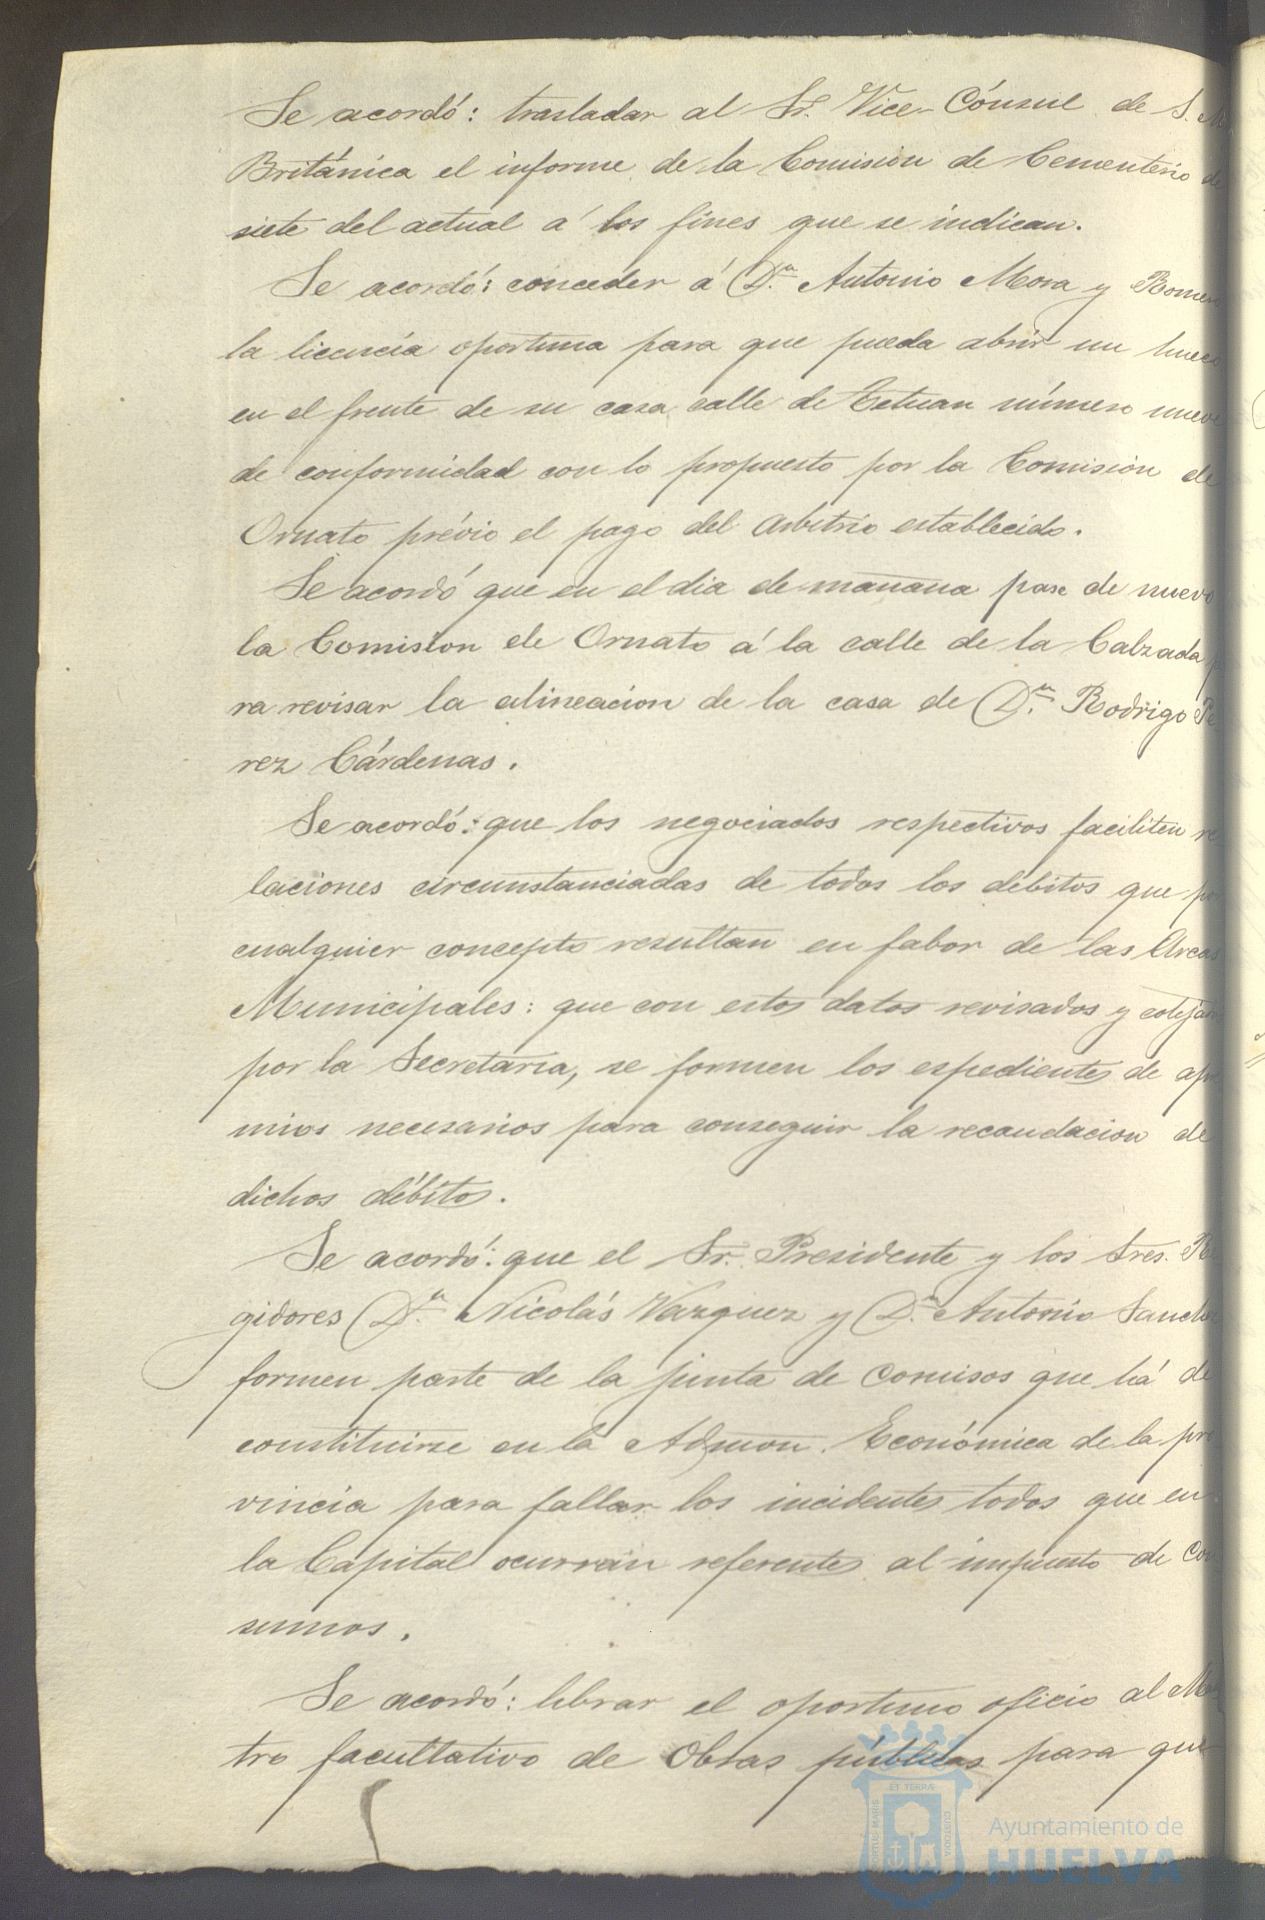 Se acordó: trasladar al Sr. Vice-Cónsul de S. M.
Británica el informe de la Comision de Cementerio de
siete del actual á los fines que se indican.
Se acordó: conceder á Dn. Antonio Mora y Romero
la licencia oportuna para que pueda abrir un hueco
en el frente de su casa calle de Tetuan número nueve
de conformidad con lo propuesto por la Comisión de
Ornato prévio el pago del arbitrio establecido.
Se acordó que en el dia de mañana pase de nuevo
la Comision de Ornato á la calle de la Calzada pa
ra revisar la alineacion de la casa de Dn. Rodrigo Pe
rez Cárdenas.
Se acordó: que los negociados respectivos faciliten re
laciones circunstanciadas de todos los débitos que por
cualquier concepto resultan en fabor de las Arcas
Municipales: que con estos datos revisados y cotejados
por la Secretaria, se formen los espedientes de apre
mios necesarios para conseguir la recaudacion de
dichos débitos.
Se acordó: que el Sr. Presidente y los Sres. Re
gidores Dn. Nicolás Vazquez y Dn. Antonio Sanchez
formen parte de la junta de Comisos que há de
constituirse en la Admon. Económica de la pro
vincia para fallar los incidentes todos que en
la Capital ocurran referentes al impuesto de Con
sumos.
Se acordó: librar el oportuno oficio al Maes
tro facultativo de Obras públicas para que
Ayuntamiento de
HUELVA